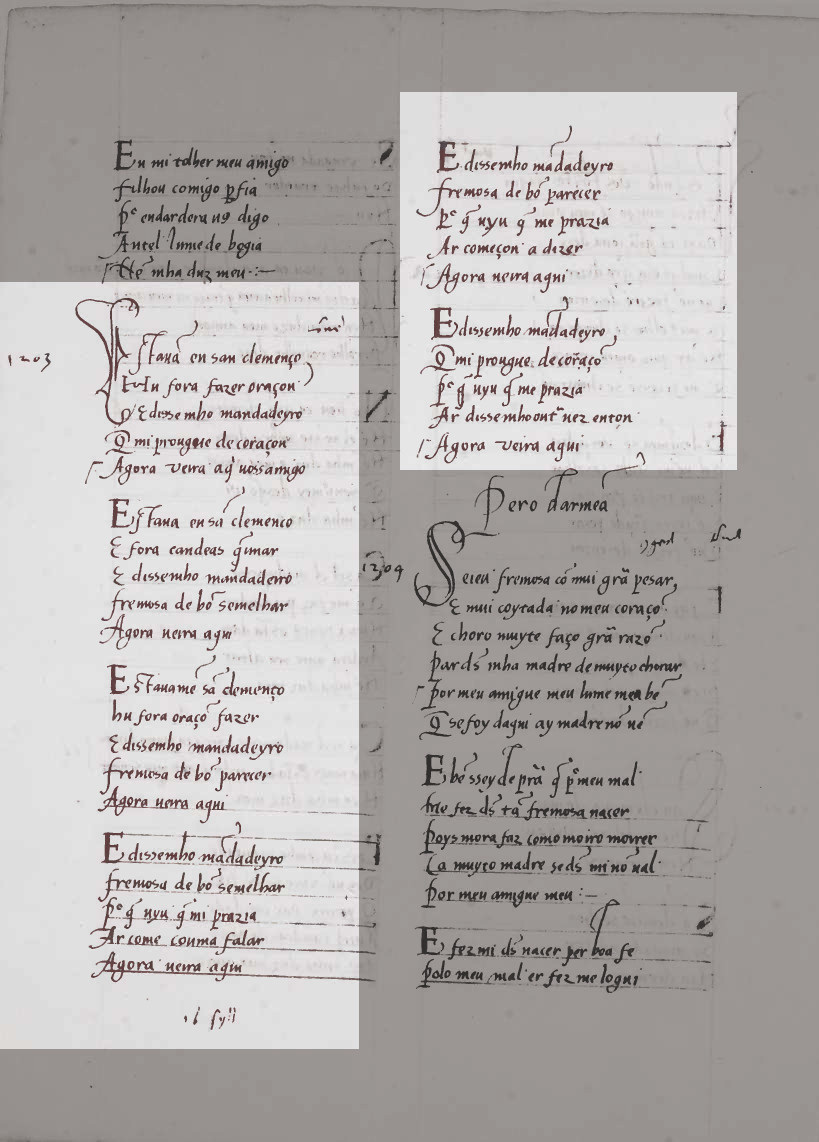 En mi tolher meu amigo
filhou comigo perfia
Pero endardera uꝯ digo
Antel lume de begia
mha diz meu :~
1203
Estaua en san clemenço
Hu fora fazer oraçon
E disse mho mandadeyro
Q̃ mi prougue de coraçon
Agora ueira aq̇ uossamigo
Estaua en sã clemenco
E fora candeas q̃imar
E dissemho mandadeiro
fremosa de bõ semelhar
Agora ueira aqui
Estauame sã clemenço
hu fora oraçõ fazer
E dissemho mandadeyro
fremosa de bõ parecer
Agora ueira aqui
E dissemho mãdadeyro
fremosa de bõ semelhar
Pᵒ q̃ uyu q̃ mi prazia
Ar come couma falar
Agora ueira aqui
E dissemho mãdadeyro
fremosa de bõ parecer
Pᵒ q̃ uyu q̃ me prazia
Ar começou a dizer
Agora ueira aqui
E dissemho mãdadeyro
Q̃ mi prougue de coraçõ
Pᵒ q̃ uyu q̃ me prazia
Ar dissemho outͬ uez enton
Agora ueira aqui
Pero darmeã
1204
Seieu fremosa cõ mui grã pesar
E mui coytada no meu coraçõ
E choro muyte faço grã razõ
Par ds̃ mha madre de muyto chorar
Por meu amigue meu lume mea bẽ
Q̃ se foy daqui ay madre nõ uẽ
E bẽ ssey de prã q̃ pᵒ meu mal
me fez ds̃ tã fremosa nacer
Poys mora faz como moiro morrer
Ca muyto madre se ds̃ mi nõ ual
Por meu amigue meu :~
E fez mi ds̃ nacer per boa fe
Polo meu mal er fez me logui